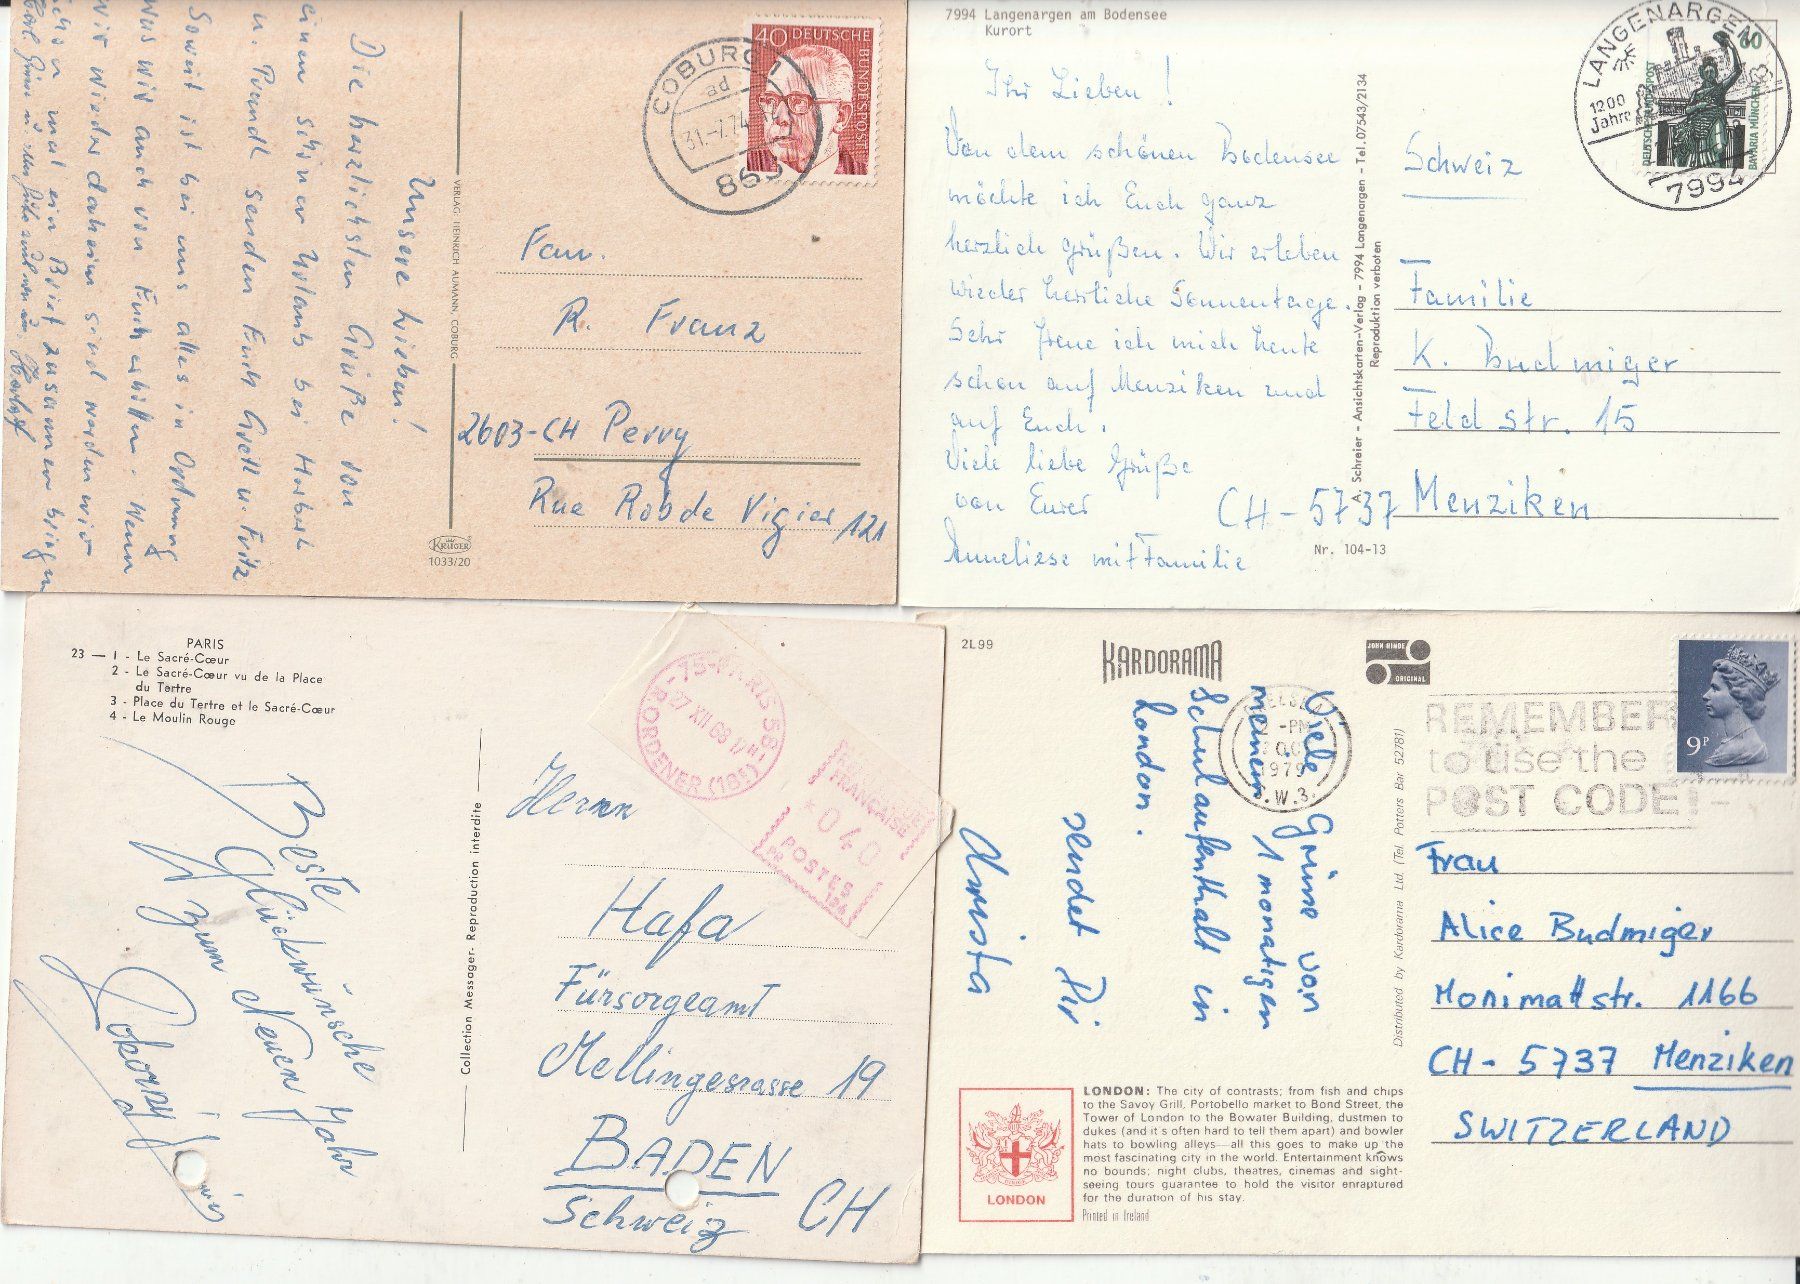 Unsere Lieben!
Die herzlichsten Grüße von
einem schönen Urlaub bei Herbert
u. Traudl senden Euch Gretl u. Fritz
Soweit ist bei uns alles in Ordnung
was wir auch von Euch hoffen. Wenn
wir wieder daheim sind werden wir
schon mal ein Brief zusammen bringen
VERLAG HEINRICH AUMANN, COBURG
KRÜGER
1033/20
COBURG 1
ad
31.-7.74
863
40 DEUTSCHE
BUNDESPOST
Fam.
R. Franz
2603-CH Pervy
Rue Robde Vigier 121
7994 Langenargen am Bodensee
Kurort
Ihr Lieben!
Von dem schönen Bodensee
möchte ich Euch ganz
herzlich grüßen. Wir erleben
wieder herrliche Sonnentage.
Sehr freue ich mich heute
schon auf Menziken und
auf Euch.
Viele liebe Grüße
von Eurer
Anneliese mit Familie
A. Schreier - Ansichtskarten-Verlag - 7994 Langenargen - Tel. 07543/2134
Reproduktion verboten
Nr. 104-13
LANGENARGEN
1200
Jahre
7994
60
DEUTSCHE BUNDESPOST
BAVARIA MÜNCHEN
Schweiz
Familie
K. Budmiger
Feldstr. 15
CH-5737 Menziken
PARIS
23 — 1 - Le Sacré-Cœur
2 - Le Sacré-Cœur vu de la Place
du Tertre
3 - Place du Tertre et le Sacré-Cœur
4 - Le Moulin Rouge
Beste
Glückwünsche
zum Neuen Jahr
Collection Messager - Reproduction interdite
75-PARIS 58
27 XII 68 17H
R. ORDENER (18E)
FRANÇAISE
*040
POSTES
Herrn
Hafa
Fürsorgeamt
Mellingesrasse 19
BADEN
Schweiz CH
2L99
KARDORAMA
JOHN HINDE
ORIGINAL
Viele Grüsse von
meinem 1 monatigen
Schulaufenthalt in
London.
sendet Dir
CHELSEA
-PM
OC
1979
S.W.3.
REMEMBER
to use the
POST CODE!
9P
Distributed by Kardorama Ltd. (Tel. Potters Bar 52781)
Frau
Alice Budmiger
Monimattstr. 1166
CH-5737 Menziken
SWITZERLAND
LONDON
LONDON: The city of contrasts; from fish and chips
to the Savoy Grill, Portobello market to Bond Street, the
Tower of London to the Bowater Building, dustmen to
dukes (and it's often hard to tell them apart) and bowler
hats to bowling alleys—all this goes to make up the
most fascinating city in the world. Entertainment knows
no bounds; night clubs, theatres, cinemas and sight-
seeing tours guarantee to hold the visitor enraptured
for the duration of his stay.
Printed in Ireland